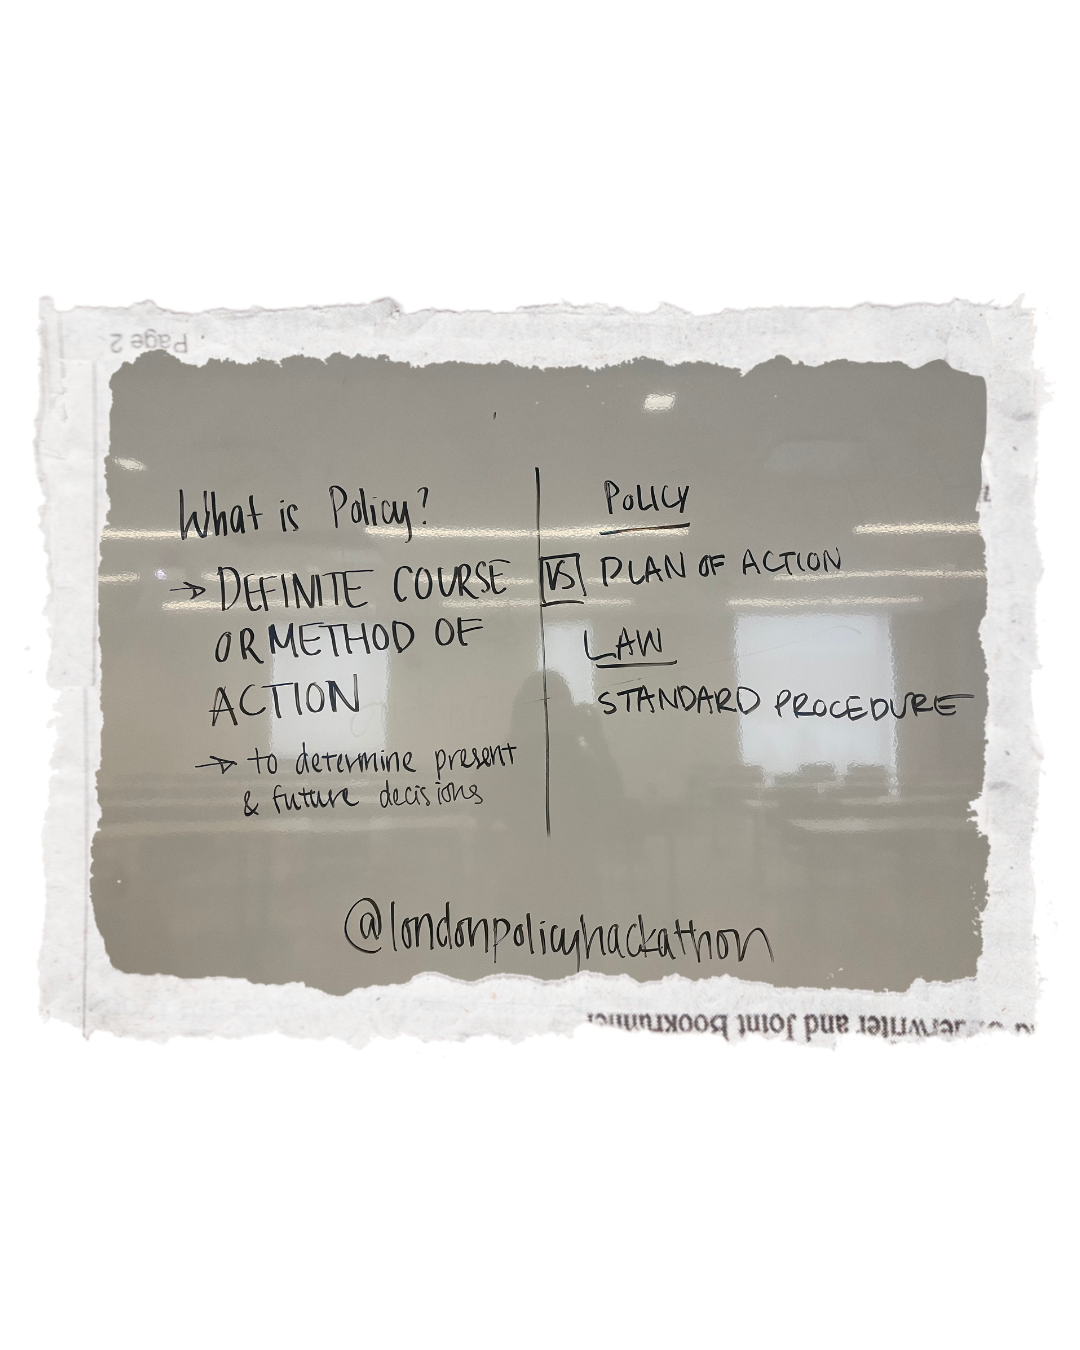 Page 2
What is Policy?
→ DEFINITE COURSE
OR METHOD OF
ACTION
→ to determine present
& future decisions
POLICY
VS
PLAN OF ACTION
LAW
STANDARD PROCEDURE
@londonpolicyhackathon
and Joint Bookrunner